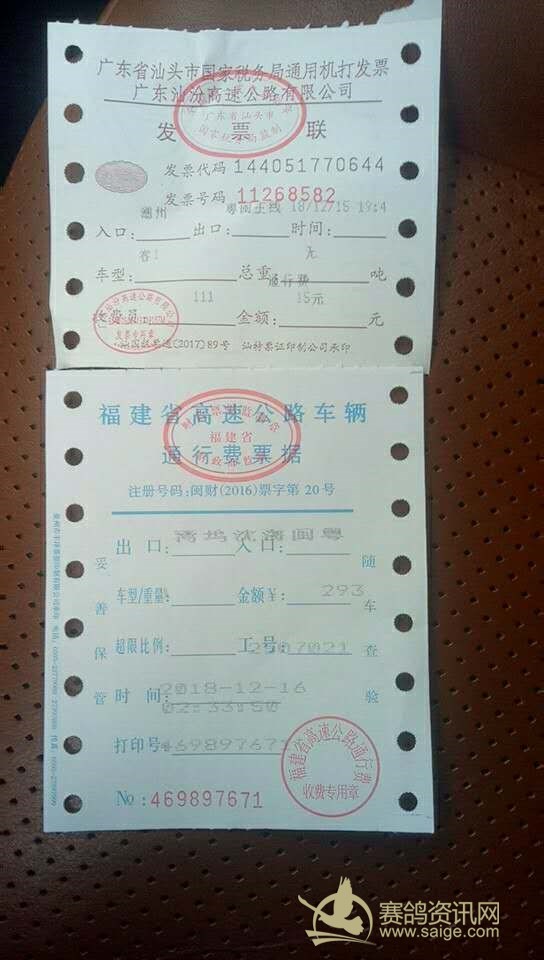 广东省汕头市国家税务局通用机打发票
广东汕汾高速公路有限公司
广东省汕头市
国家税务局监制
发 票 联
发票代码 144051770644
发票号码 11268582
潮州 粤闽主线 18/12/15 19:4
入口: 出口: 时间:
客1 无
车型: 总重: 吨
通行费
111 15元
收费员: 金额: 元
发票专用章
汕特票证印制公司承印
福建省高速公路车辆
福建省
通行费票据
注册号码:闽财(2016)票字第 20 号
出 口: 入 口:
车型/重量: 金额¥: 293
超限比例: 工 号: 2707021
时 间: 2018-12-16
02:33:50
打印号: 469897671
妥善保管
随车查验
福建省高速公路通行费
收费专用章
№: 469897671
赛鸽资讯网
www.saige.com